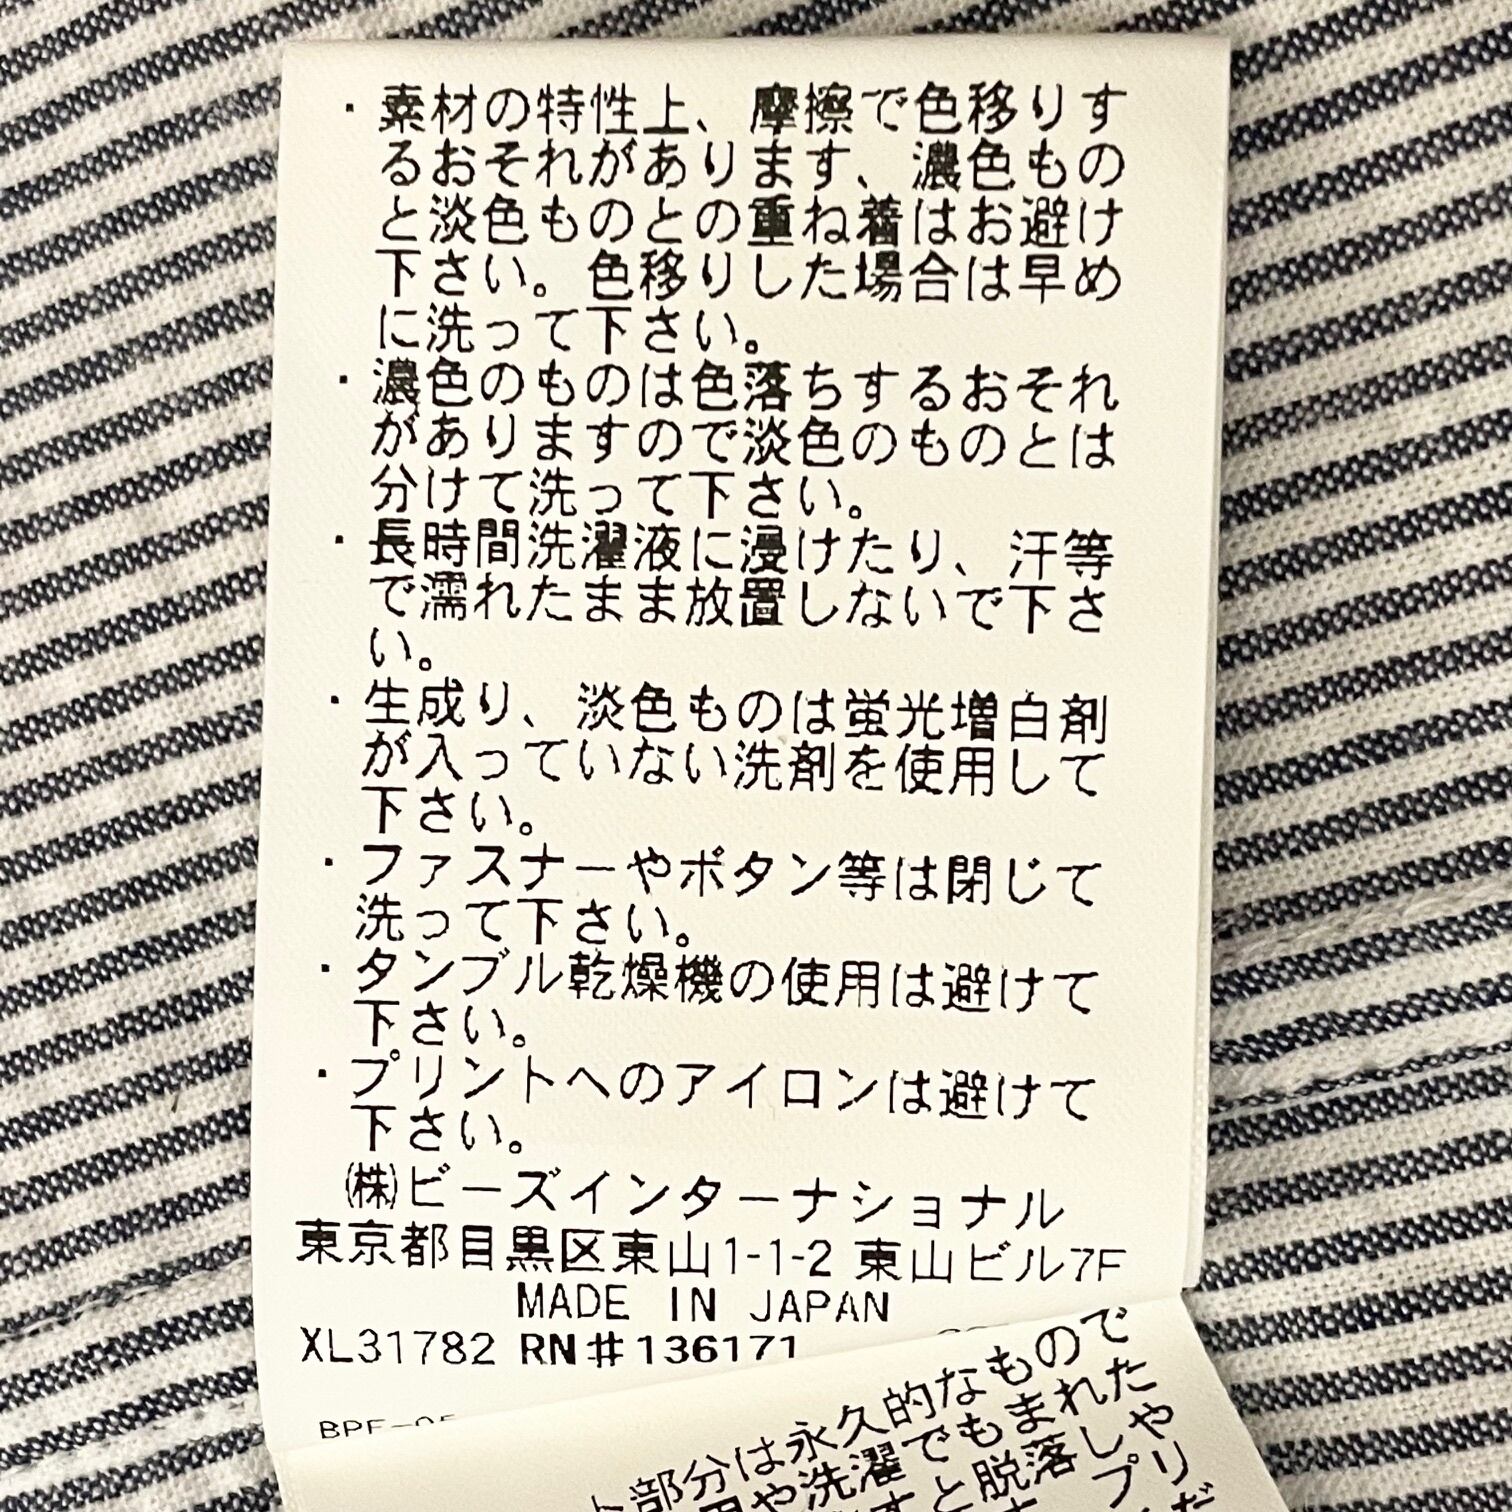 ・素材の特性上、摩擦で色移りす
るおそれがあります、濃色もの
と淡色ものとの重ね着はお避け
下さい。色移りした場合は早め
に洗って下さい。
・濃色のものは色落ちするおそれ
がありますので淡色のものとは
分けて洗って下さい。
・長時間洗濯液に浸けたり、汗等
で濡れたまま放置しないで下さ
い。
・生成り、淡色ものは蛍光増白剤
が入っていない洗剤を使用して
下さい。
・ファスナーやボタン等は閉じて
洗って下さい。
・タンブル乾燥機の使用は避けて
下さい。
・プリントへのアイロンは避けて
下さい。
㈱ビーズインターナショナル
東京都目黒区東山1-1-2 東山ビル7F
MADE IN JAPAN
XL31782 RN#136171
部分は永久的なもので
や洗濯でもまれた
すと脱落しや
プリ